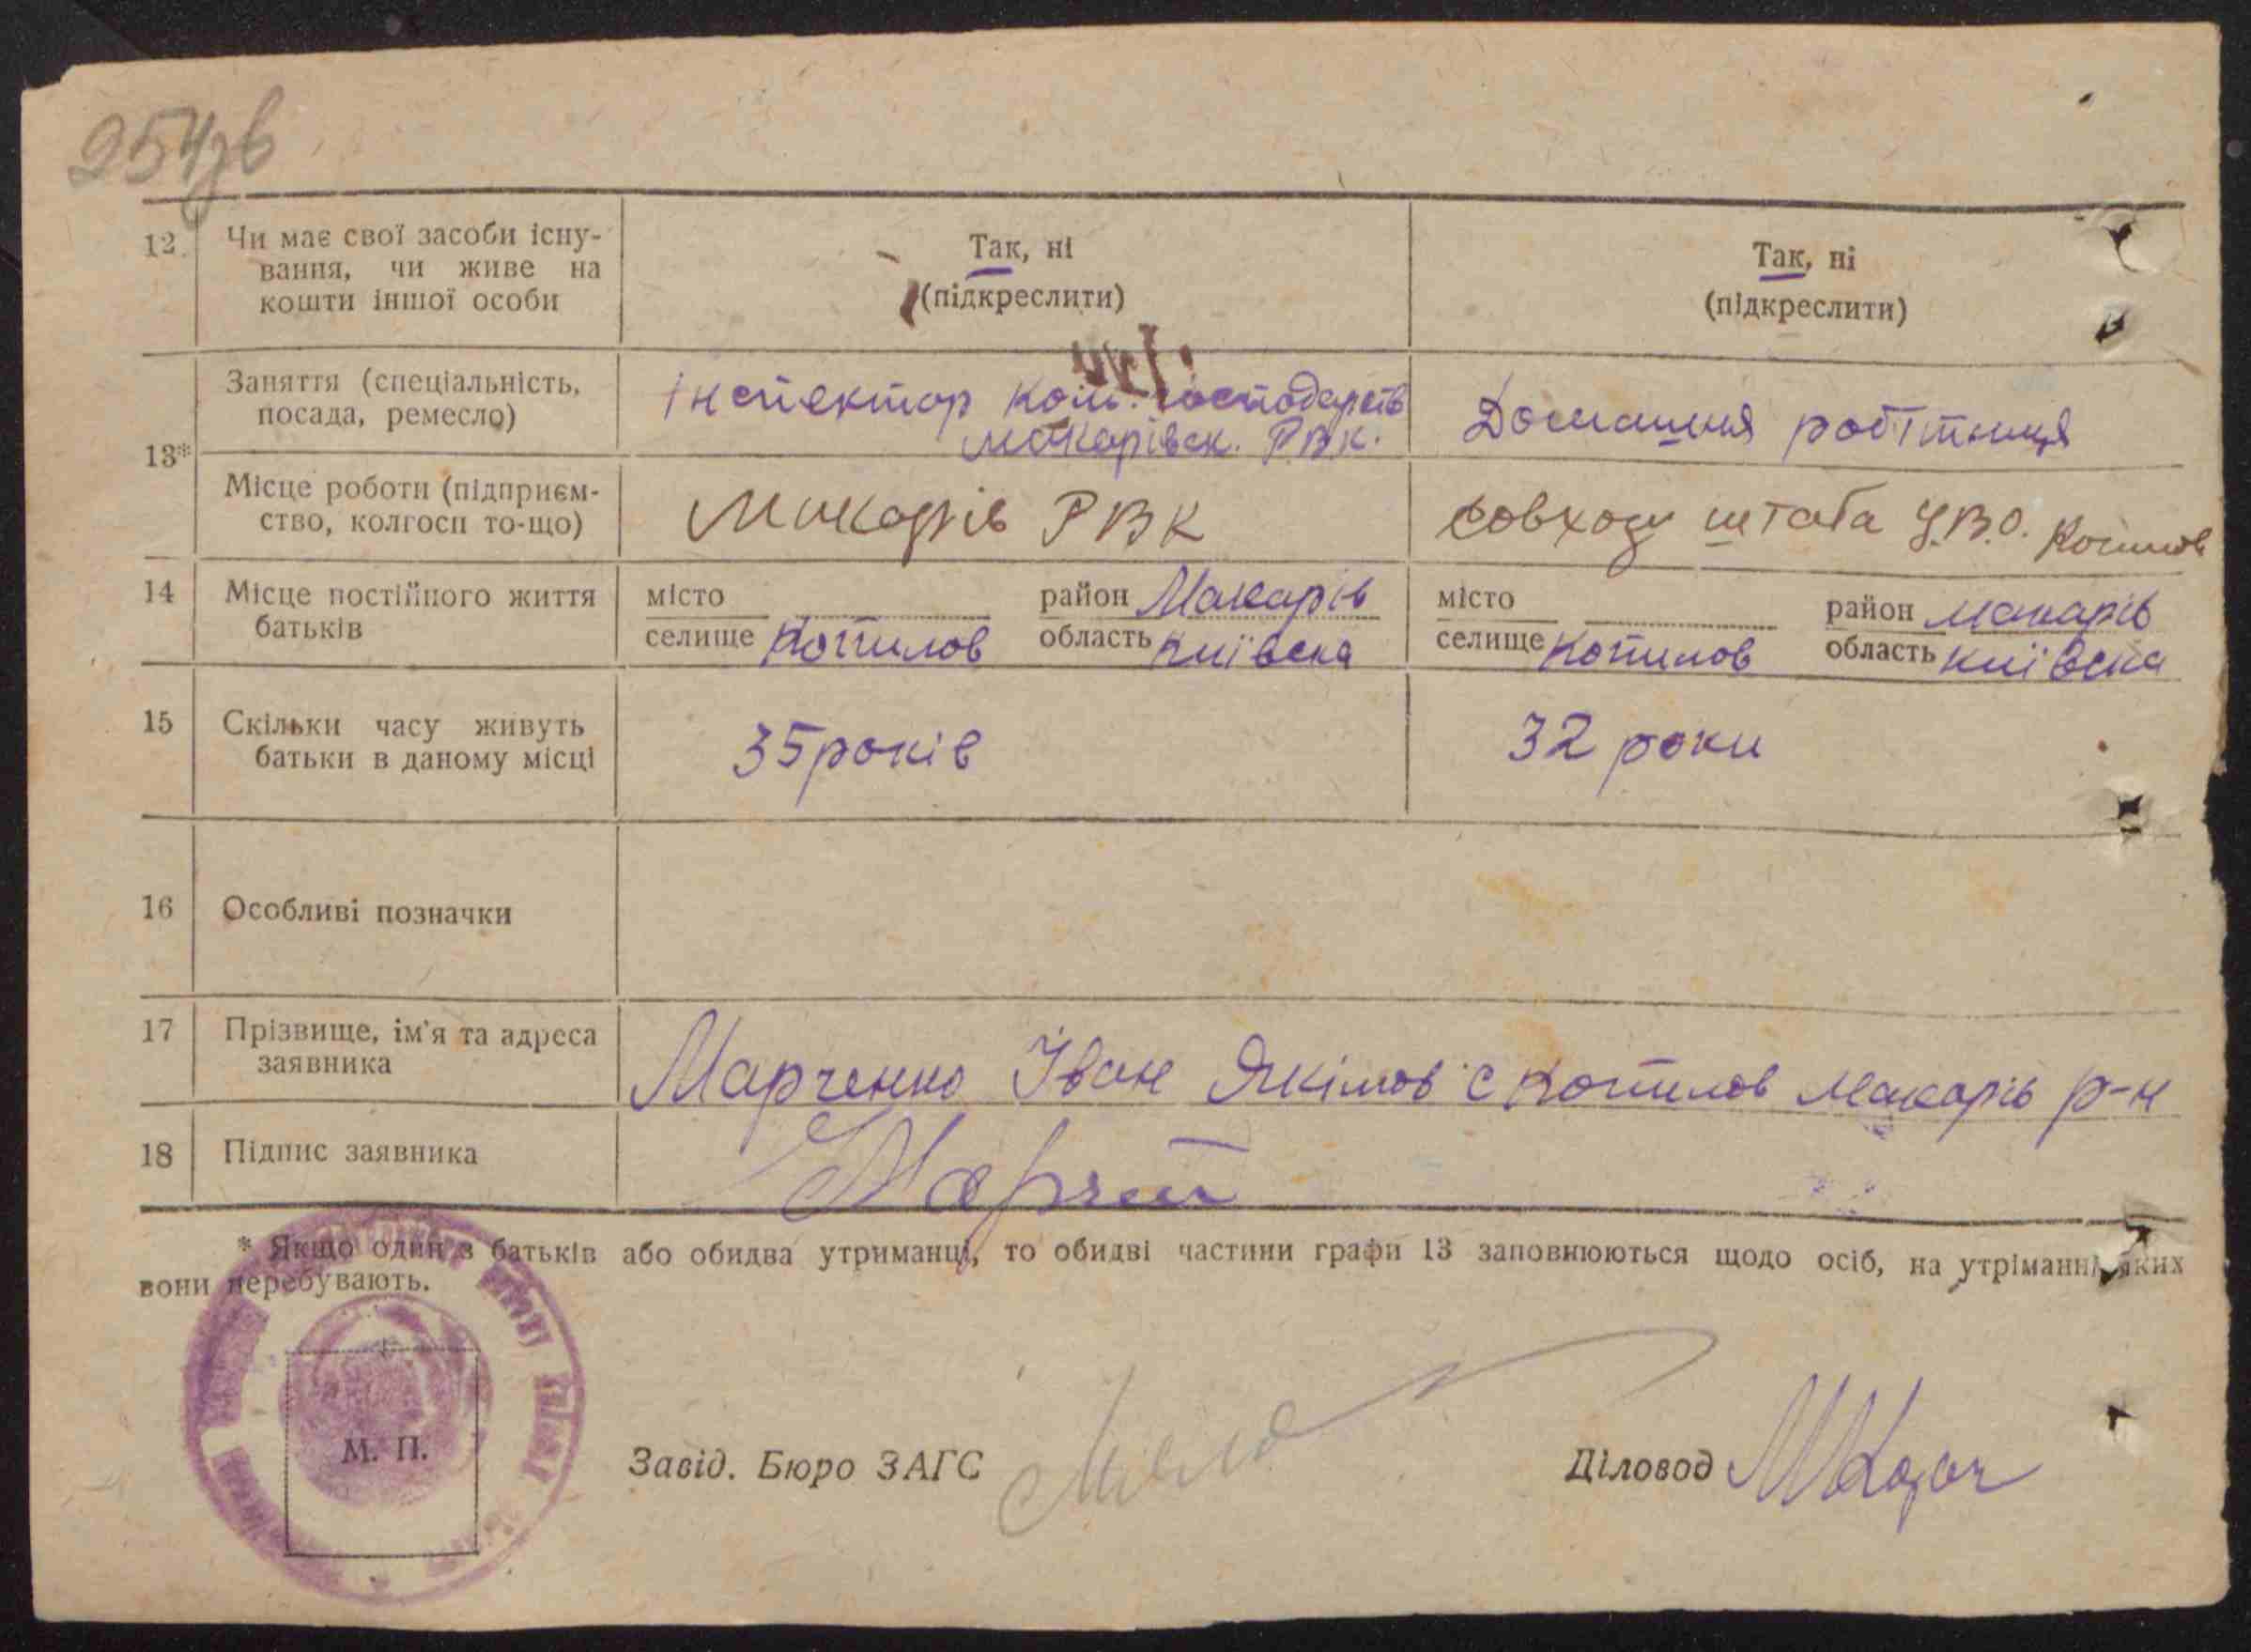 254зв
12. Чи має свої засоби існу-
вання, чи живе на
кошти іншої особи
Так, ні
(підкреслити)
Так, ні
(підкреслити)
13*
Заняття (спеціальність,
посада, ремесло)
Інспектор ком. господарств
Макарівск. РВК.
Домашня робітниця
Місце роботи (підприєм-
ство, колгосп то-що)
Макарів РВК
Совхоз штаба У.В.О. Копилов
14 Місце постійного життя
батьків
місто
селище Копилов
район Макарів
область Київска
місто
селище Копилов
район Макарів
область Київска
15 Скільки часу живуть
батьки в даному місці
35 років
32 роки
16 Особливі позначки
17 Прізвище, ім'я та адреса
заявника
Марченко Іван Якімов с Копилов Макарів р-н
18 Підпис заявника
* Якщо один з батьків або обидва утриманці, то обидві частини графи 13 заповнюються щодо осіб, на утріманні яких
вони перебувають.
М. П.
Завід. Бюро ЗАГС
Діловод